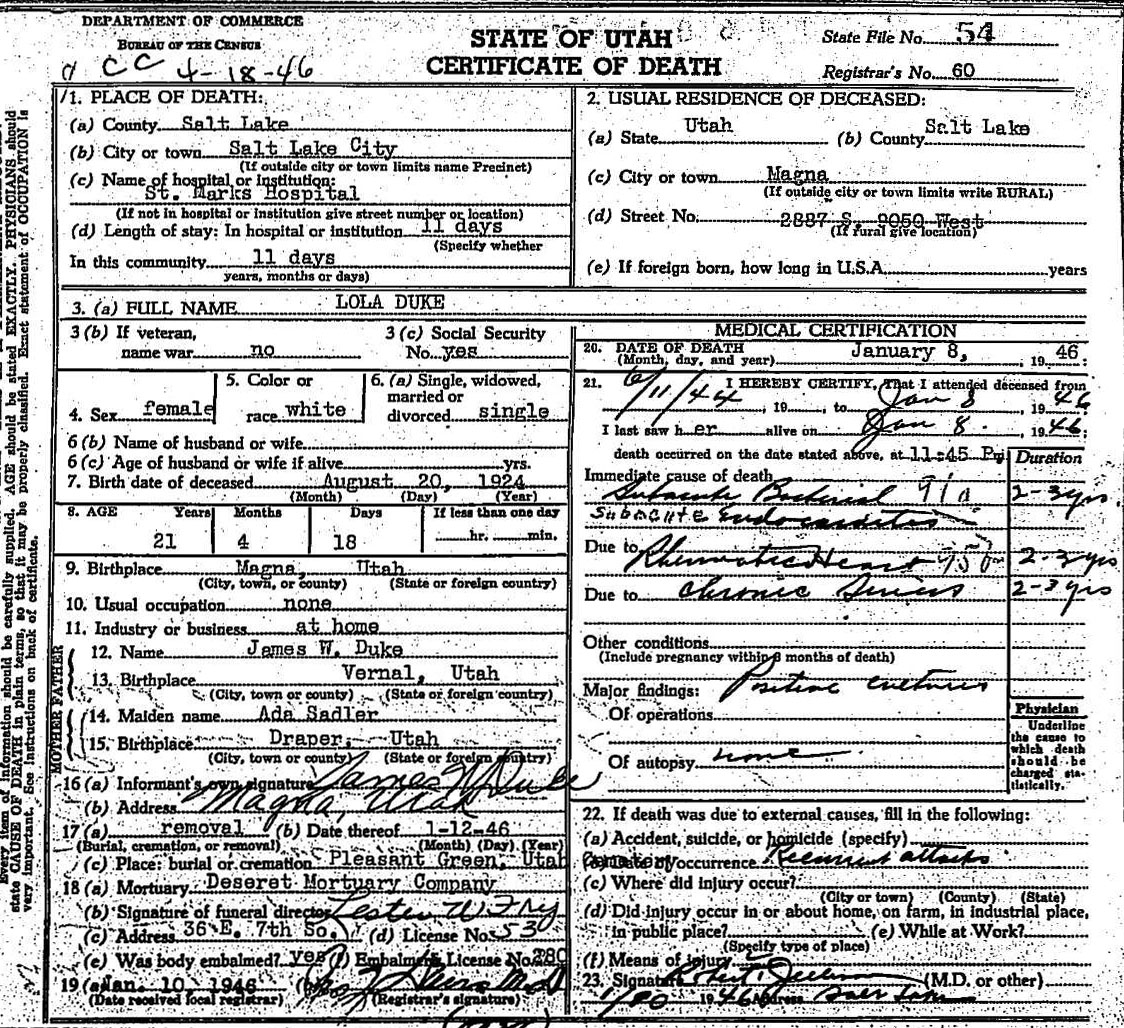 DEPARTMENT OF COMMERCE
BUREAU OF THE CENSUS
CC 4-18-46
STATE OF UTAH
CERTIFICATE OF DEATH
State File No. 54
Registrar's No. 60
1. PLACE OF DEATH:
(a) County Salt Lake
(b) City or town Salt Lake City
(If outside city or town limits name Precinct)
(c) Name of hospital or institution:
St. Marks Hospital
(If not in hospital or institution give street number or location)
(d) Length of stay: In hospital or institution 11 days
(Specify whether
In this community 11 days
years, months or days)
2. USUAL RESIDENCE OF DECEASED:
(a) State Utah (b) County Salt Lake
(c) City or town Magna
(If outside city or town limits write RURAL)
(d) Street No. 2887 S. 9050 West
(If rural give location)
(e) If foreign born, how long in U.S.A. years
3. (a) FULL NAME LOLA DUKE
3 (b) If veteran, 3 (c) Social Security
name war no No. yes
5. Color or 6. (a) Single, widowed,
married or
4. Sex female race white divorced single
6 (b) Name of husband or wife
6 (c) Age of husband or wife if alive yrs.
7. Birth date of deceased August 20, 1924
(Month) (Day) (Year)
8. AGE Years Months Days If less than one day
21 4 18 hr. min.
9. Birthplace Magna, Utah
(City, town, or county) (State or foreign country)
10. Usual occupation none
11. Industry or business at home
FATHER
12. Name James W. Duke
13. Birthplace Vernal, Utah
(City, town or county) (State or foreign country)
MOTHER
14. Maiden name Ada Sadler
15. Birthplace Draper, Utah
(City, town or county) (State or foreign country)
16 (a) Informant's own signature James W Duke
(b) Address Magna, Utah
17 (a) removal (b) Date thereof 1-12-46
(Burial, cremation, or removal) (Month) (Day) (Year)
(c) Place: burial or cremation Pleasant Green, Utah
Cemetery
18 (a) Mortuary Deseret Mortuary Company
(b) Signature of funeral director Lester W Fry
(c) Address 36 E. 7th So. (d) License No. 530
(e) Was body embalmed? yes (f) Embalmer's License No. 280
19 (a) Jan. 10, 1946 (b) M.D.
(Date received local registrar) (Registrar's signature)
MEDICAL CERTIFICATION
20. DATE OF DEATH January 8, 1946:
(Month, day, and year)
21. I HEREBY CERTIFY, That I attended deceased from
6/11/44, 19 , to Jan 8 1946
I last saw her alive on Jan 8 1946:
death occurred on the date stated above, at 11:45 P.M. Duration
Immediate cause of death
Subacute Bacterial 91a 2-3 yrs
Subacute Endocarditis
Due to Rheumatic Heart 95b 2-3 yrs
Due to chronic 2-3 yrs
Other conditions
(Include pregnancy within 3 months of death)
Major findings: Positive cultures
Of operations
Of autopsy none
Physician
Underline
the cause to
which death
should be
charged sta-
tistically.
22. If death was due to external causes, fill in the following:
(a) Accident, suicide, or homicide (specify)
(b) Date of occurrence Recurrent attacks
(c) Where did injury occur?
(City or town) (County) (State)
(d) Did injury occur in or about home, on farm, in industrial place,
in public place? (e) While at Work?
(Specify type of place)
(f) Means of injury
23. Signature Robert (M.D. or other)
1946 Address Salt Lake
Every item of information should be carefully supplied. AGE should be stated EXACTLY. PHYSICIANS should
state CAUSE OF DEATH in plain terms, so that it may be properly classified. Exact statement of OCCUPATION is
very important. See instructions on back of certificate.